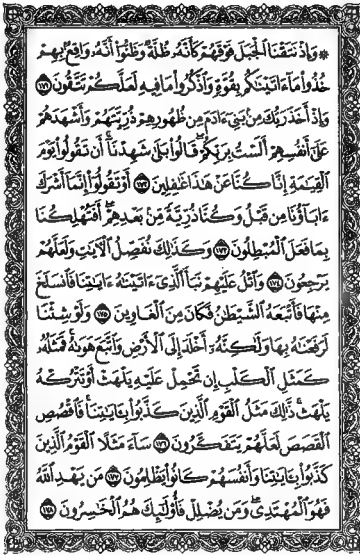 ۞ وَإِذْ نَتَقْنَا ٱلْجَبَلَ فَوْقَهُمْ كَأَنَّهُۥ ظُلَّةٌ وَظَنُّوٓا۟ أَنَّهُۥ وَاقِعٌۢ بِهِمْ
خُذُوا۟ مَآ ءَاتَيْنَٰكُم بِقُوَّةٍ وَٱذْكُرُوا۟ مَا فِيهِ لَعَلَّكُمْ تَتَّقُونَ ۝١٧١
وَإِذْ أَخَذَ رَبُّكَ مِنۢ بَنِىٓ ءَادَمَ مِن ظُهُورِهِمْ ذُرِّيَّتَهُمْ وَأَشْهَدَهُمْ
عَلَىٰٓ أَنفُسِهِمْ أَلَسْتُ بِرَبِّكُمْ ۖ قَالُوا۟ بَلَىٰ ۛ شَهِدْنَآ ۛ أَن تَقُولُوا۟ يَوْمَ
ٱلْقِيَٰمَةِ إِنَّا كُنَّا عَنْ هَٰذَا غَٰفِلِينَ ۝١٧٢ أَوْ تَقُولُوٓا۟ إِنَّمَآ أَشْرَكَ
ءَابَآؤُنَا مِن قَبْلُ وَكُنَّا ذُرِّيَّةً مِّنۢ بَعْدِهِمْ ۖ أَفَتُهْلِكُنَا
بِمَا فَعَلَ ٱلْمُبْطِلُونَ ۝١٧٣ وَكَذَٰلِكَ نُفَصِّلُ ٱلْءَايَٰتِ وَلَعَلَّهُمْ
يَرْجِعُونَ ۝١٧٤ وَٱتْلُ عَلَيْهِمْ نَبَأَ ٱلَّذِىٓ ءَاتَيْنَٰهُ ءَايَٰتِنَا فَٱنسَلَخَ
مِنْهَا فَأَتْبَعَهُ ٱلشَّيْطَٰنُ فَكَانَ مِنَ ٱلْغَاوِينَ ۝١٧٥ وَلَوْ شِئْنَا
لَرَفَعْنَٰهُ بِهَا وَلَٰكِنَّهُۥٓ أَخْلَدَ إِلَى ٱلْأَرْضِ وَٱتَّبَعَ هَوَىٰهُ ۚ فَمَثَلُهُۥ
كَمَثَلِ ٱلْكَلْبِ إِن تَحْمِلْ عَلَيْهِ يَلْهَثْ أَوْ تَتْرُكْهُ
يَلْهَث ۚ ذَّٰلِكَ مَثَلُ ٱلْقَوْمِ ٱلَّذِينَ كَذَّبُوا۟ بِـَٔايَٰتِنَا ۚ فَٱقْصُصِ
ٱلْقَصَصَ لَعَلَّهُمْ يَتَفَكَّرُونَ ۝١٧٦ سَآءَ مَثَلًا ٱلْقَوْمُ ٱلَّذِينَ
كَذَّبُوا۟ بِـَٔايَٰتِنَا وَأَنفُسَهُمْ كَانُوا۟ يَظْلِمُونَ ۝١٧٧ مَن يَهْدِ ٱللَّهُ
فَهُوَ ٱلْمُهْتَدِى ۖ وَمَن يُضْلِلْ فَأُو۟لَٰٓئِكَ هُمُ ٱلْخَٰسِرُونَ ۝١٧٨